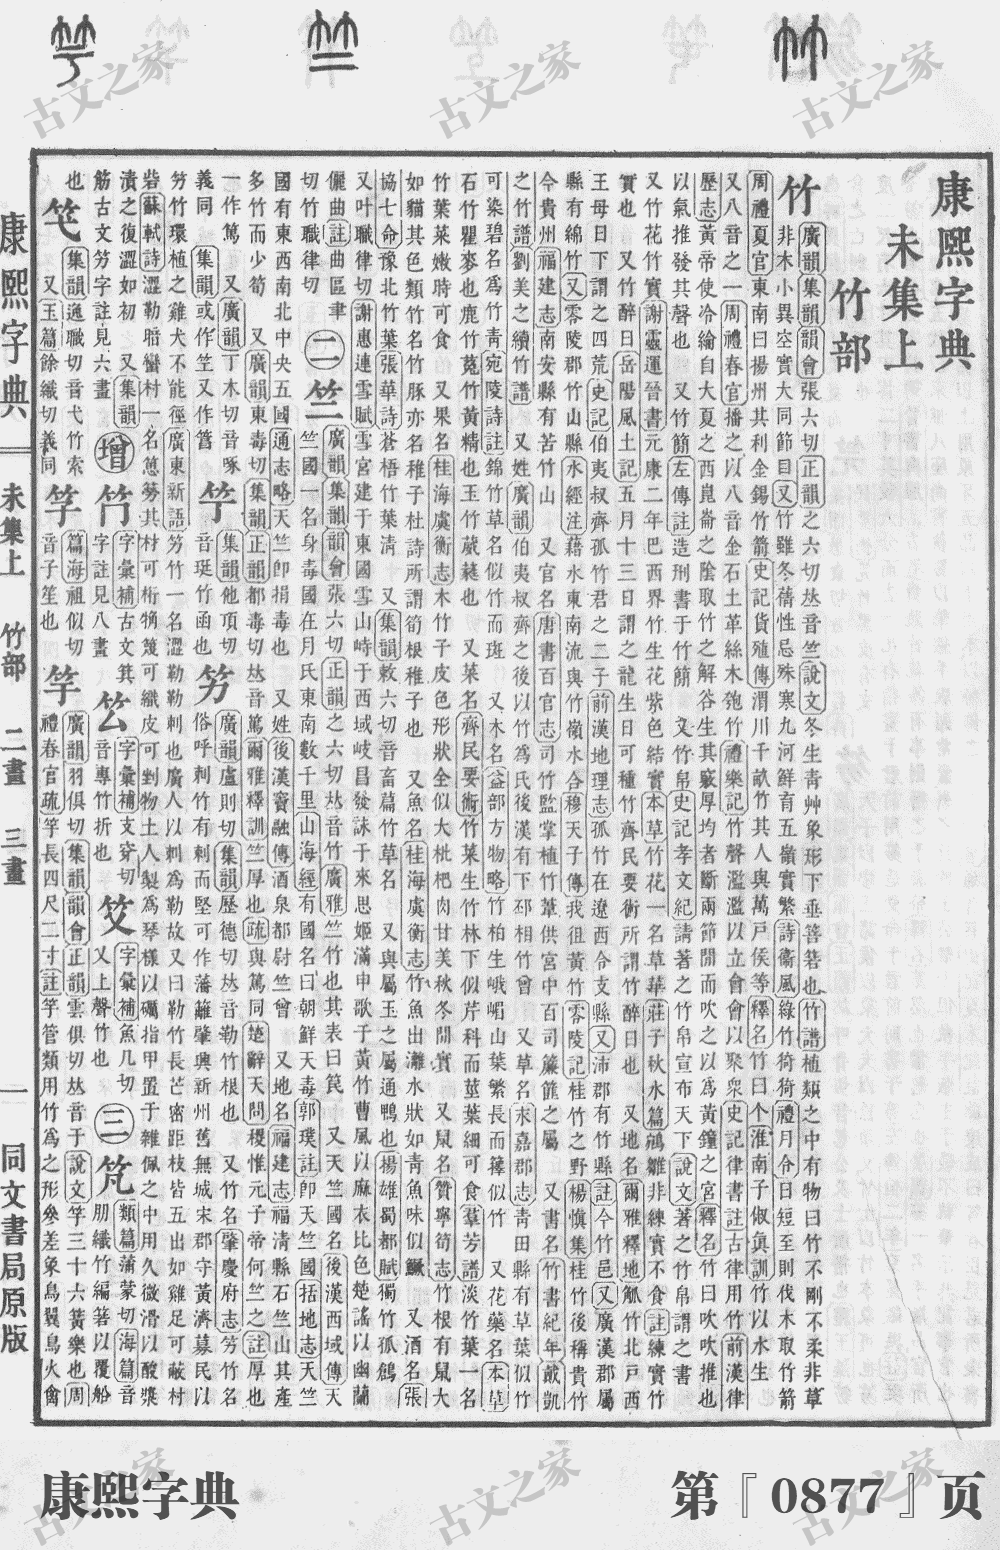 康熙字典
未集上
竹部
竹 廣韻集韻韻會張六切正韻之六切𠀤音竺說文冬生靑艸象形下垂箁箬也竹譜植類之中有物曰竹不剛不柔非草
非木小異空實大同節目又竹雖冬蒨性忌殊寒九河鮮育五嶺實繁詩衞風綠竹猗猗禮月令日短至則伐木取竹箭
周禮夏官東南曰揚州其利金錫竹箭史記貨殖傳渭川千畝竹其人與萬戸侯等釋名竹曰个淮南子俶眞訓竹以水生
又八音之一周禮春官播之以八音金石土革絲木匏竹禮樂記竹聲濫濫以立會會以聚衆史記律書註古律用竹前漢律
歷志黃帝使泠綸自大夏之西崑崙之陰取竹之解谷生其竅厚均者斷兩節閒而吹之以爲黃鐘之宮釋名竹曰吹吹推也
以氣推發其聲也 又竹簡左傳註造刑書于竹簡 又竹帛史記孝文紀請著之竹帛宣布天下說文著之竹帛謂之書
又竹花竹實謝靈運晉書元康二年巴西界竹生花紫色結實本草竹花一名草華莊子秋水篇鵷鶵非練實不食註練實竹
實也 又竹醉日岳陽風土記五月十三日謂之龍生日可種竹齊民要術所謂竹醉日也 又地名爾雅釋地觚竹北戸西
王母日下謂之四荒史記伯夷叔齊孤竹君之二子前漢地理志孤竹在遼西令支縣又沛郡有竹縣註今竹邑又廣漢郡屬
縣有綿竹又零陵郡竹山縣水經注藉水東南流與竹嶺水合穆天子傳我徂黃竹零陵記桂竹之野楊愼集桂竹後稱貴竹
今貴州福建志南安縣有苦竹山 又官名唐書百官志司竹監掌植竹葦供宮中百司簾篚之屬 又書名竹書紀年戴凱
之竹譜劉美之續竹譜 又姓廣韻伯夷叔齊之後以竹爲氏後漢有下邳相竹曾 又草名永嘉郡志靑田縣有草葉似竹
可染碧名爲竹靑宛陵詩註錦竹草名似竹而斑 又木名益部方物略竹柏生峨嵋山葉繁長而籜似竹 又花藥名本草
石竹瞿麥也鹿竹菟竹黃精也玉竹葳蕤也 又菜名齊民要術竹菜生竹林下似芹科而莖葉細可食羣芳譜淡竹葉一名
竹葉菜嫩時可食 又果名桂海虞衡志木竹子皮色形狀全似大枇杷肉甘美秋冬閒實 又鼠名贊寧筍志竹根有鼠大
如貓其色類竹名竹豚亦名稚子杜詩所謂筍根稚子也 又魚名桂海虞衡志竹魚出灕水狀如靑魚味似鱖 又酒名張
協七命豫北竹葉張華詩蒼梧竹葉淸 又集韻敕六切音畜萹竹草名 又與屬玉之屬通鴨也揚雄蜀都賦獨竹孤鶬
又叶職律切謝惠連雪賦雪宮建于東國雪山峙于西域岐昌發詠于來思姬滿申歌于黃竹曹風以麻衣比色楚謠以幽蘭
儷曲註曲區聿
切竹職律切
二 竺 廣韻集韻韻會張六切正韻之六切𠀤音竹廣雅竺竹也其表曰笢 又天竺國名後漢西域傳天
竺國一名身毒國在月氏東南數千里山海經有國名曰朝鮮天毒郭璞註卽天竺國括地志天竺
國有東西南北中央五國通志略天竺卽捐毒也 又姓後漢竇融傳酒泉都尉竺曾 又地名福建志福淸縣石竺山其產
多竹而少筍 又廣韻東毒切集韻正韻都毒切𠀤音篤爾雅釋訓竺厚也疏與篤同楚辭天問稷惟元子帝何竺之註厚也
一作篤 又廣韻丁木切音啄
義同 集韻或作笁又作篙
竻
集韻他頂切
音珽竹函也
竻 廣韻盧則切集韻歷德切𠀤音勒竹根也 又竹名肇慶府志竻竹名
俗呼刺竹有刺而堅可作藩籬肇興新州舊無城宋郡守黃濟募民以
竻竹環植之雞犬不能徑廣東新語竻竹一名澀勒勒刺也廣人以刺爲勒故又曰勒竹長芒密距枝皆五出如雞足可蔽村
砦蘇軾詩澀勒暗蠻村一名𥳋竻其材可桁桷篾可織皮可剉物土人製爲琴樣以礪指甲置于雜佩之中用久微滑以酸漿
漬之復澀如初 又集韻
筋古文竻字註見六畫
增 竹
字彙補古文箕
字註見八畫
字彙補支穿切
音專竹折也
字彙補魚几切
又上聲竹也
三 竼 類篇蒲蒙切海篇音
朋織竹編箬以覆船
也 集韻逸職切音弋竹索
又玉篇餘織切義同
笁
篇海祖似切
音子笙也
竽 廣韻羽俱切集韻韻會正韻雲俱切𠀤音于說文竽三十六簧樂也周
禮春官疏竽長四尺二寸註竽管類用竹爲之形參差象鳥翼鳥火禽
康熙字典 未集上 竹部 二畫 三畫 一 同文書局原版
古文之家
古文之家
古文之家
古文之家
古文之家
古文之家
康熙字典
第『0877』页